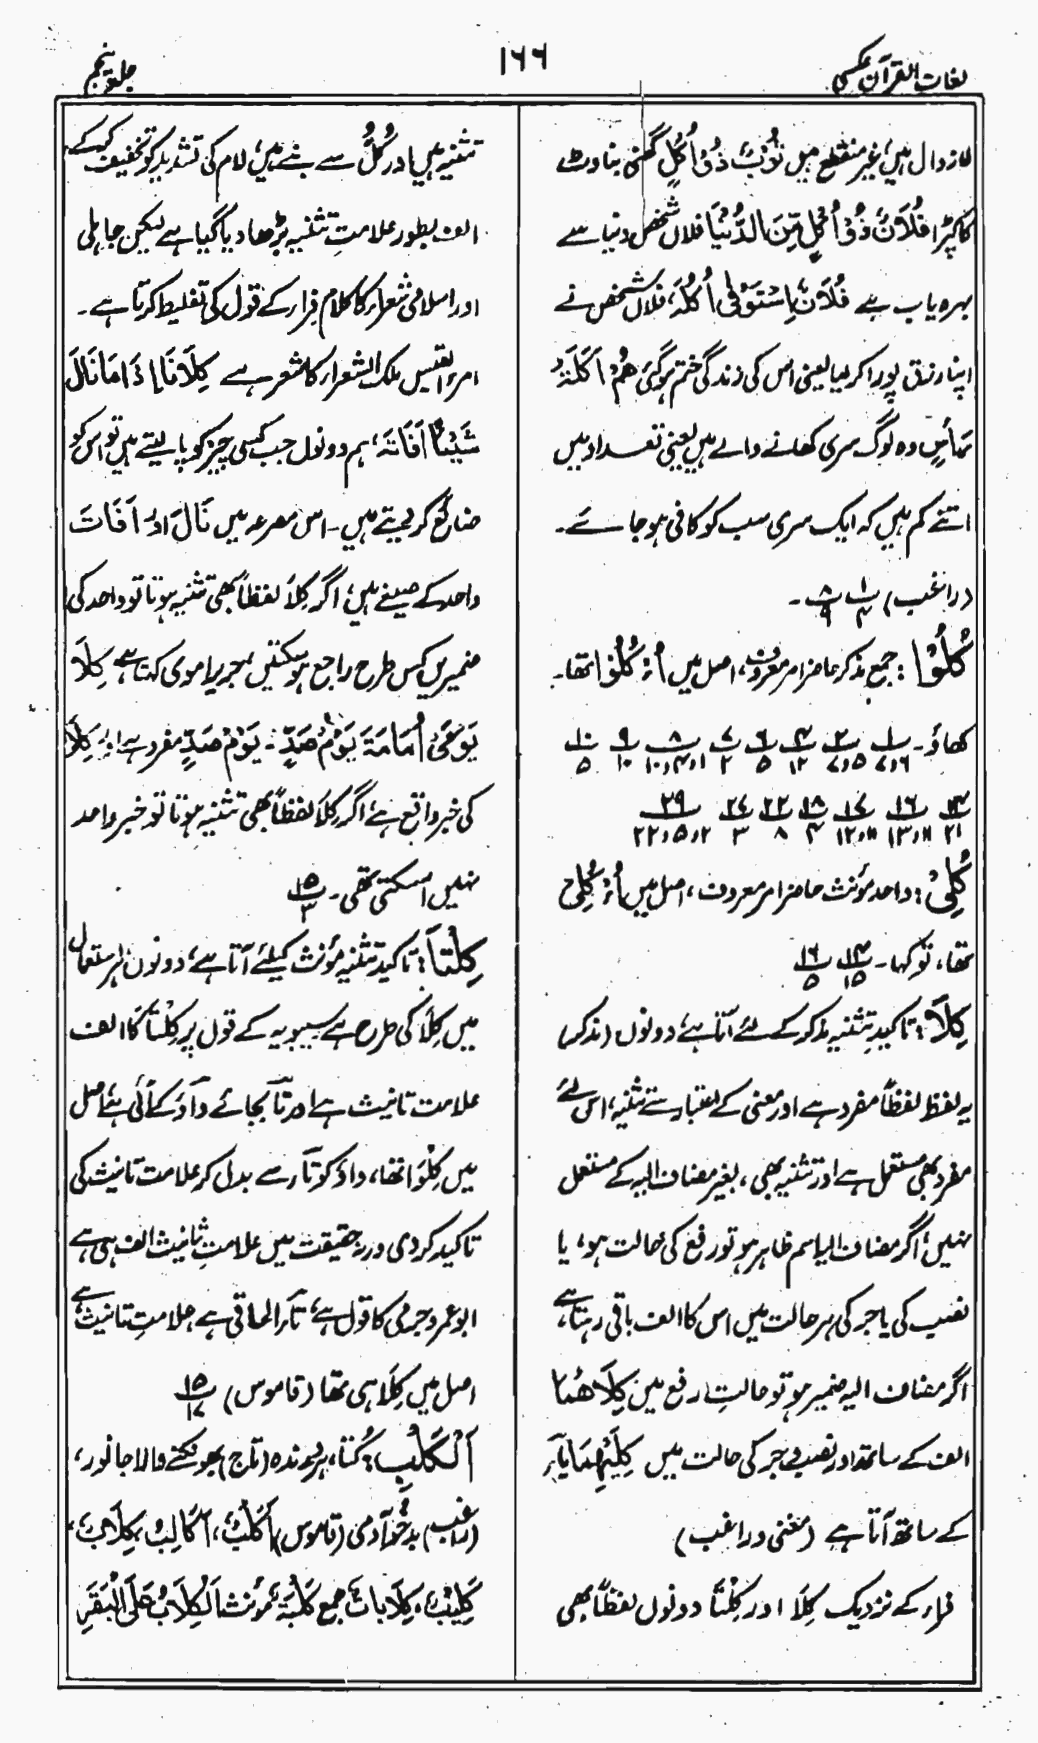 لغات القرآن عکسی
۱۶۶
جلد پنجم
لازوال ہیں، غیر منقطع ہیں ثَوْبٌ ذُوْ اُكُلٍ گھنی بناوٹ
کا کپڑا فُلَانٌ ذُوْ اُكُلٍ مِّنَ الدُّنْيَا فلاں شخص دنیا سے
بہرہ یاب ہے فُلَانٌ اِسْتَوْفٰى اُكُلَهٗ، فلاں شخص نے
اپنا رزق پورا کر لیا یعنی اس کی زندگی ختم ہو گئی هُمْ اَكَلَةُ
رَأْسٍ وہ لوگ سری کھانے والے ہیں یعنی تعداد میں
اتنے کم ہیں کہ ایک سری سب کو کافی ہو جائے۔
(راغب) ۱/۴ ۸/۹ ۔
كُلُوْا: جمع مذکر حاضر امر معروف، اصل میں اُءْ كُلُوْا تھا۔
کھاؤ۔ ۱/۶،۷ ۲/۵،۷ ۴/۱۲ ۶/۵ ۷/۲ ۸/۱،۴،۱۰ ۹/۱۰ ۱۰/۵
۱۴/۲۱ ۱۶/۱۱،۱۳ ۱۷/۱۱،۱۲ ۱۸/۴ ۲۲/۸ ۲۷/۳ ۲۹/۲،۵،۲۲
كُلِىْ: واحد مؤنث حاضر امر معروف، اصل میں اُءْ كُلِىْ
تھا، تو کھا۔ ۱۴/۱۵ ۱۶/۵
كِلَا: تاکیدِ تثنیہ مذکر کے لئے آتا ہے دونوں (مذکر)
یہ لفظ لفظاً مفرد ہے اور معنی کے اعتبار سے تثنیہ، اس لئے
مفرد بھی مستعمل ہے اور تثنیہ بھی، بغیر مضاف الیہ کے مستعمل
نہیں، اگر مضاف الیہ اسم ظاہر ہو تو رفع کی حالت ہو، یا
نصب کی یا جر کی ہر حالت میں اس کا الف باقی رہتا ہے،
اگر مضاف الیہ ضمیر ہو تو حالتِ رفع میں كِلَاهُمَا
الف کے ساتھ اور نصب و جر کی حالت میں كِلَيْهِمَا یاء
کے ساتھ آتا ہے (مغنی و راغب)
فراء کے نزدیک كِلَا اور كِلْتَا دونوں لفظاً بھی
تثنیہ ہیں اور كُلٌّ سے بنے ہیں، لام کی تشدید کو تخفیف کر کے
الف بطور علامتِ تثنیہ بڑھا دیا گیا ہے لیکن جاہلی
اور اسلامی شعراء کا کلام فراء کے قول کی تغلیط کرتا ہے۔
امرءالقیس ملک الشعراء کا شعر ہے كِلَانَا اِذَا مَا نَالَ
شَيْئًا اَفَاتَهٗ، ہم دونوں جب کسی چیز کو پا لیتے ہیں تو اس کو
ضائع کر دیتے ہیں۔ اس مصرعہ میں نَالَ اور اَفَاتَ
واحد کے صیغے ہیں، اگر كِلَا لفظاً بھی تثنیہ ہوتا تو واحد کی
ضمیریں کس طرح راجع ہو سکتیں جریر اموی کہتا ہے كِلَا
يَوْمَىْ اُمَامَةَ يَوْمُ صَدٍّ۔ يَوْمُ صَدٍّ مفرد ہے اور كِلَا
کی خبر واقع ہے، اگر كِلَا لفظاً بھی تثنیہ ہوتا تو خبر واحد
نہیں آ سکتی تھی۔ ۱۵/۳
كِلْتَا: تاکید تثنیہ مؤنث کیلئے آتا ہے، دونوں، استعمال
میں كِلَا کی طرح ہے سیبویہ کے قول پر كِلْتَا کا الف
علامت تانیث ہے اور تآ بجائے واؤ کے آئی ہے، اصل
میں كِلْوَا تھا، واؤ کو تآر سے بدل کر علامت تانیث کی
تاکید کر دی ورنہ حقیقت میں علامتِ تانیث الف ہی ہے
ابوعمرو جرمی کا قول ہے، تآر الحاقی ہے علامتِ تانیث ہے
اصل میں كِلَا ہی تھا (قاموس) ۱۵/۱۷
اَلْكَلْبِ: کتا، ہر درندہ (تاج) بھونکنے والا جانور،
(راغب) بدخو آدمی (قاموس) اَكْلُبٌ، اَكَالِبُ، كِلَابٌ،
كَلِيْبٌ، كِلَابَاتٌ جمع كَلْبَةٌ مؤنث اَلْكِلَابُ عَلَى الْبَقَرِ